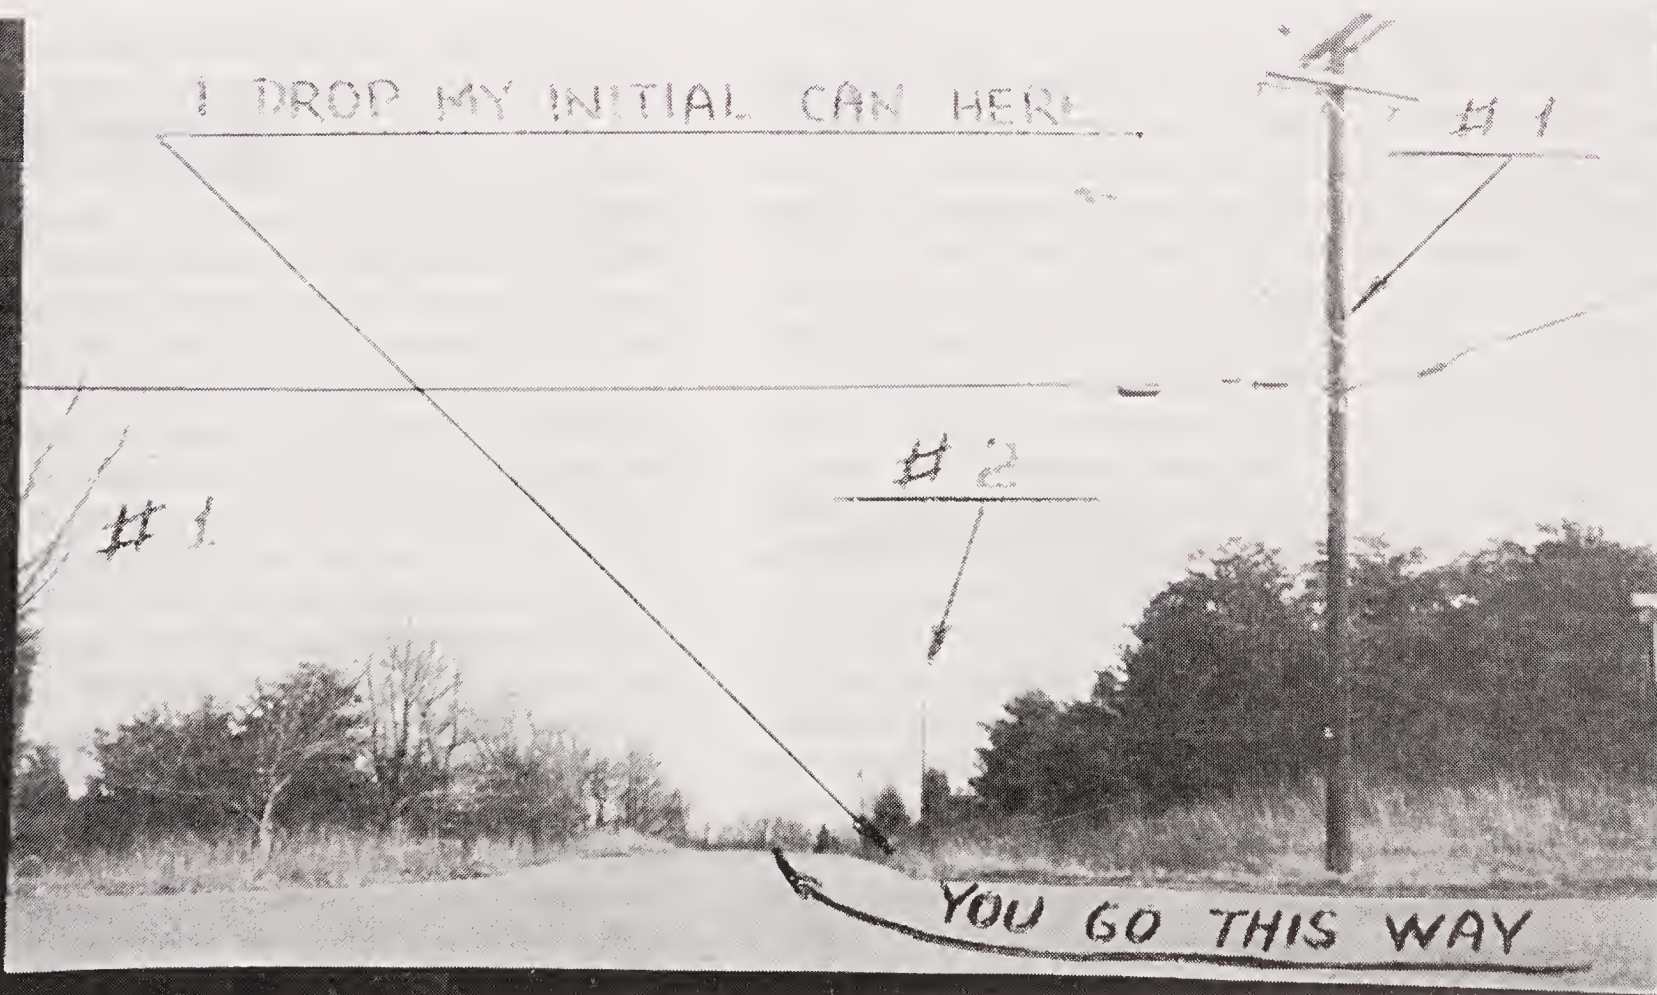 I DROP MY INITIAL CAN HERE
# 1
# 2
# 1
YOU GO THIS WAY